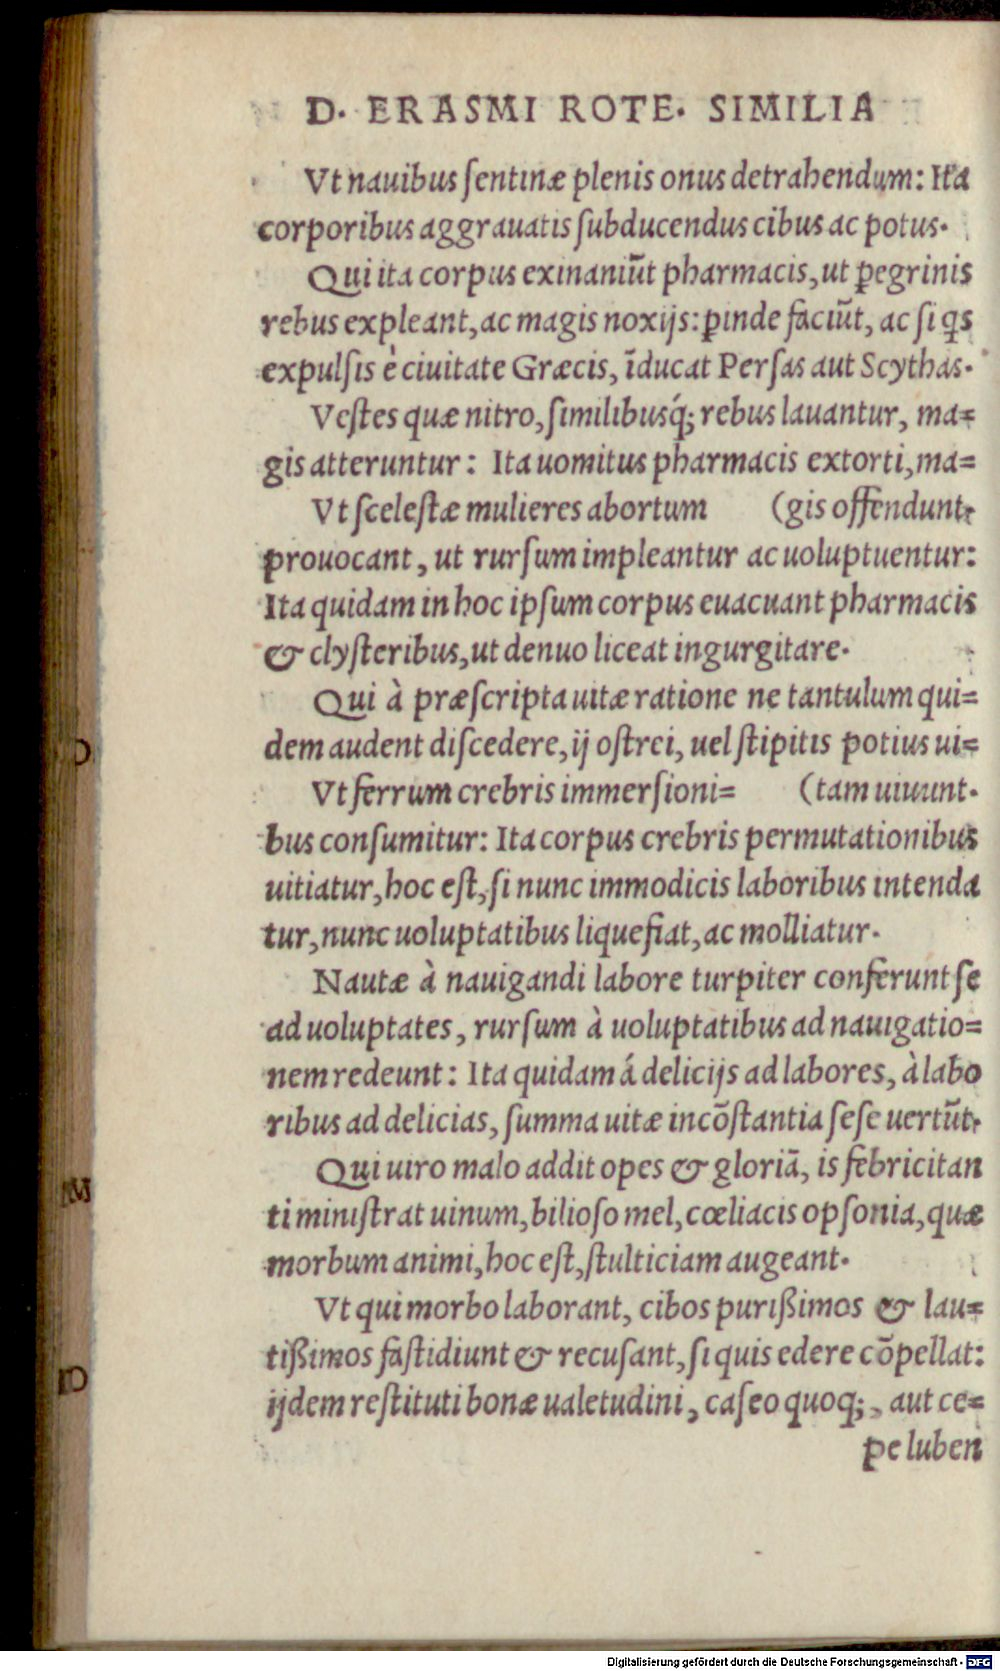 D. ERASMI ROTE. SIMILIA
Vt nauibus ſentinæ plenis onus detrahendum: Ita
corporibus aggrauatis ſubducendus cibus ac potus.
Qui ita corpus exinaniũt pharmacis, ut ꝑegrinis
rebus expleant, ac magis noxijs: ꝑinde faciũt, ac ſi qs
expulſis è ciuitate Græcis, ĩducat Perſas aut Scythas.
Veſtes quæ nitro, ſimilibusq́; rebus lauantur, ma=
gis atteruntur: Ita uomitus pharmacis extorti, ma=
Vt ſceleſtæ mulieres abortum (gis offendunt.
prouocant, ut rurſum impleantur ac uoluptuentur:
Ita quidam in hoc ipſum corpus euacuant pharmacis
& clyſteribus, ut denuo liceat ingurgitare.
Qui à præſcripta uitæ ratione ne tantulum qui=
dem audent diſcedere, ij oſtrei, uel ſtipitis potius ui=
Vt ferrum crebris immerſioni= (tam uiuunt.
bus conſumitur: Ita corpus crebris permutationibus
uitiatur, hoc eſt, ſi nunc immodicis laboribus intenda
tur, nunc uoluptatibus liquefiat, ac molliatur.
Nautæ à nauigandi labore turpiter conferunt ſe
ad uoluptates, rurſum à uoluptatibus ad nauigatio=
nem redeunt: Ita quidam á delicijs ad labores, à labo
ribus ad delicias, ſumma uitæ incõſtantia ſeſe uertũt.
Qui uiro malo addit opes & gloriã, is febricitan
ti miniſtrat uinum, bilioſo mel, cœliacis opſonia, quæ
morbum animi, hoc eſt, ſtulticiam augeant.
Vt qui morbo laborant, cibos purißimos & lau=
tißimos faſtidiunt & recuſant, ſi quis edere cõpellat:
ijdem reſtituti bonæ ualetudini, caſeo quoq;, aut ce=
pe luben
Digitalisierung gefördert durch die Deutsche Forschungsgemeinschaft - DFG